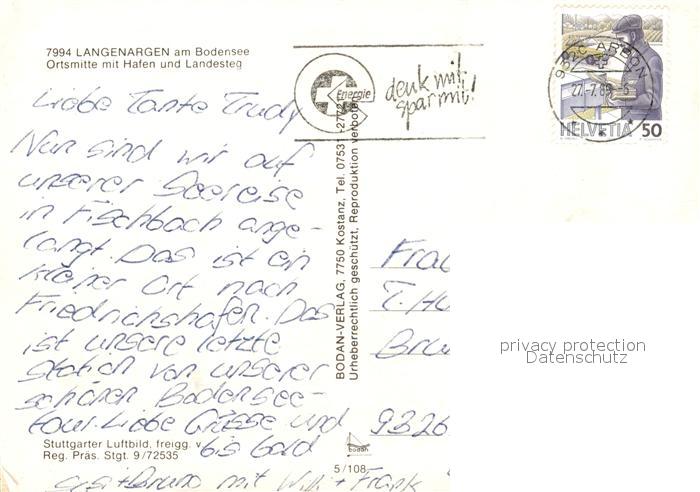 7994 LANGENARGEN am Bodensee
Ortsmitte mit Hafen und Landesteg
Liebe Tante Trudy
Nun sind wir auf
unserer Seereise
in Fischbach ange-
langt. Das ist ein
kleiner Ort nach
Friedrichshafen. Das
ist unsere letzte
Station von unserer
schönen Bodensee-
tour. Liebe Grüsse und
bis bald
+ Bruno mit Willi + Frank
Stuttgarter Luftbild, freigg. v.
Reg. Präs. Stgt. 9/72535
BODAN-VERLAG, 7750 Kostanz, Tel. 07531-2772
Urheberrechtlich geschützt, Reproduktion verboten
bodan
5/108
Energie
denk mit
spar mit!
ARBON
27.-7.
HELVETIA 50
Frau
T. Hu
Bru
9326
privacy protection
Datenschutz